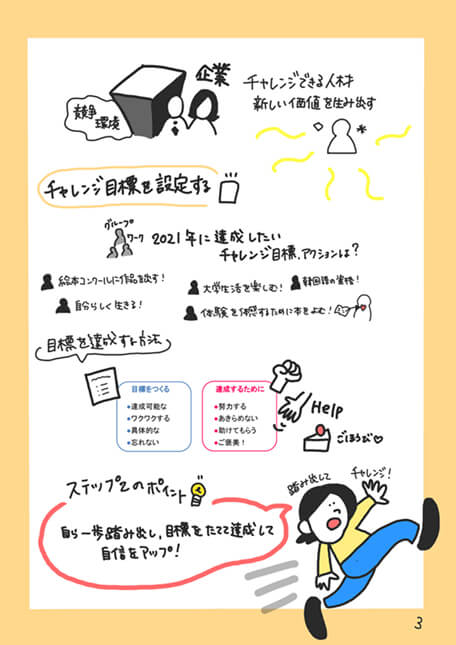 企業
競争
環境
チャレンジできる人材
新しい価値を生み出す
チャレンジ目標を設定する
グループ
ワーク
2021年に達成したい
チャレンジ目標、アクションは?
絵本コンクールに作品を出す!
大学生活を楽しむ!
韓国語の資格!
自分らしく生きる!
体験を体感するために本をよむ!
目標を達成する方法
目標をつくる
●達成可能な
●ワクワクする
●具体的な
●忘れない
達成するために
●努力する
●あきらめない
●助けてもらう
●ご褒美!
Help
ごほうび♡
ステップ2のポイント
踏み出して
チャレンジ!
自ら一歩踏み出し、目標をたてて達成して
自信をアップ!
3